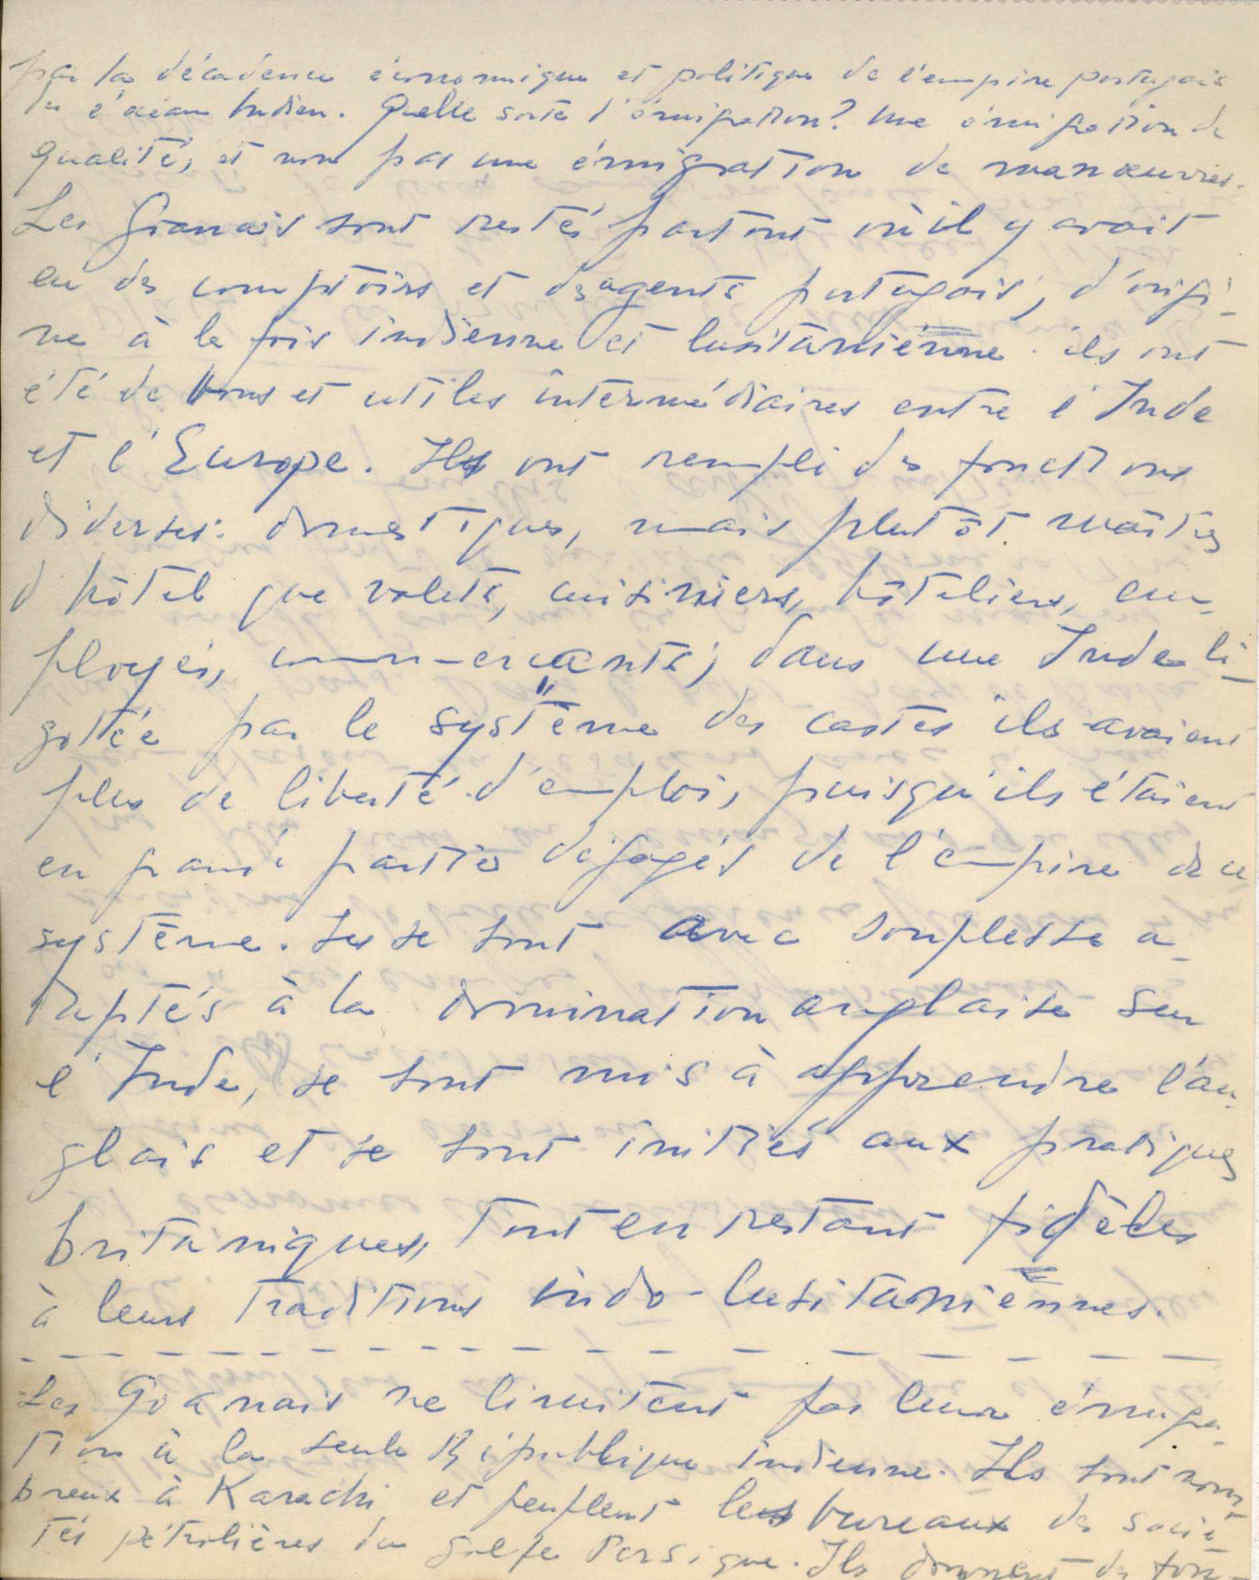 par la décadence économique et politique de l'empire portugais
de l'océan Indien. Quelle sorte d'émigration? Une émigration de
qualité, et non pas une émigration de manœuvres.
Les Goanais sont restés partout où il y avait
eu des comptoirs et des agents portugais; d'origi-
ne à la fois indienne et lusitanienne ils ont
été de bons et utiles intermédiaires entre l'Inde
et l'Europe. Ils ont rempli des fonctions
diverses: domestiques, mais plutôt maîtres
d'hôtel que valets, cuisiniers, hôteliers, em-
ployés, commerçants; dans une Inde li-
gotée par le système des castes ils avaient
plus de liberté d'emploi, puisqu'ils étaient
en grande partie dégagés de l'empire de ce
système. Ils se sont avec souplesse a-
daptés à la domination anglaise sur
l'Inde, se sont mis à apprendre l'an-
glais et se sont initiés aux pratiques
britaniques, tout en restant fidèles
à leurs traditions indo-lusitaniennes.
Les Goanais ne limitent pas leur émigra-
tion à la seule République indienne. Ils sont nom-
breux à Karachi et peuplent les bureaux des socié-
tés pétrolières du golfe Persique. Ils donnent des fonc-